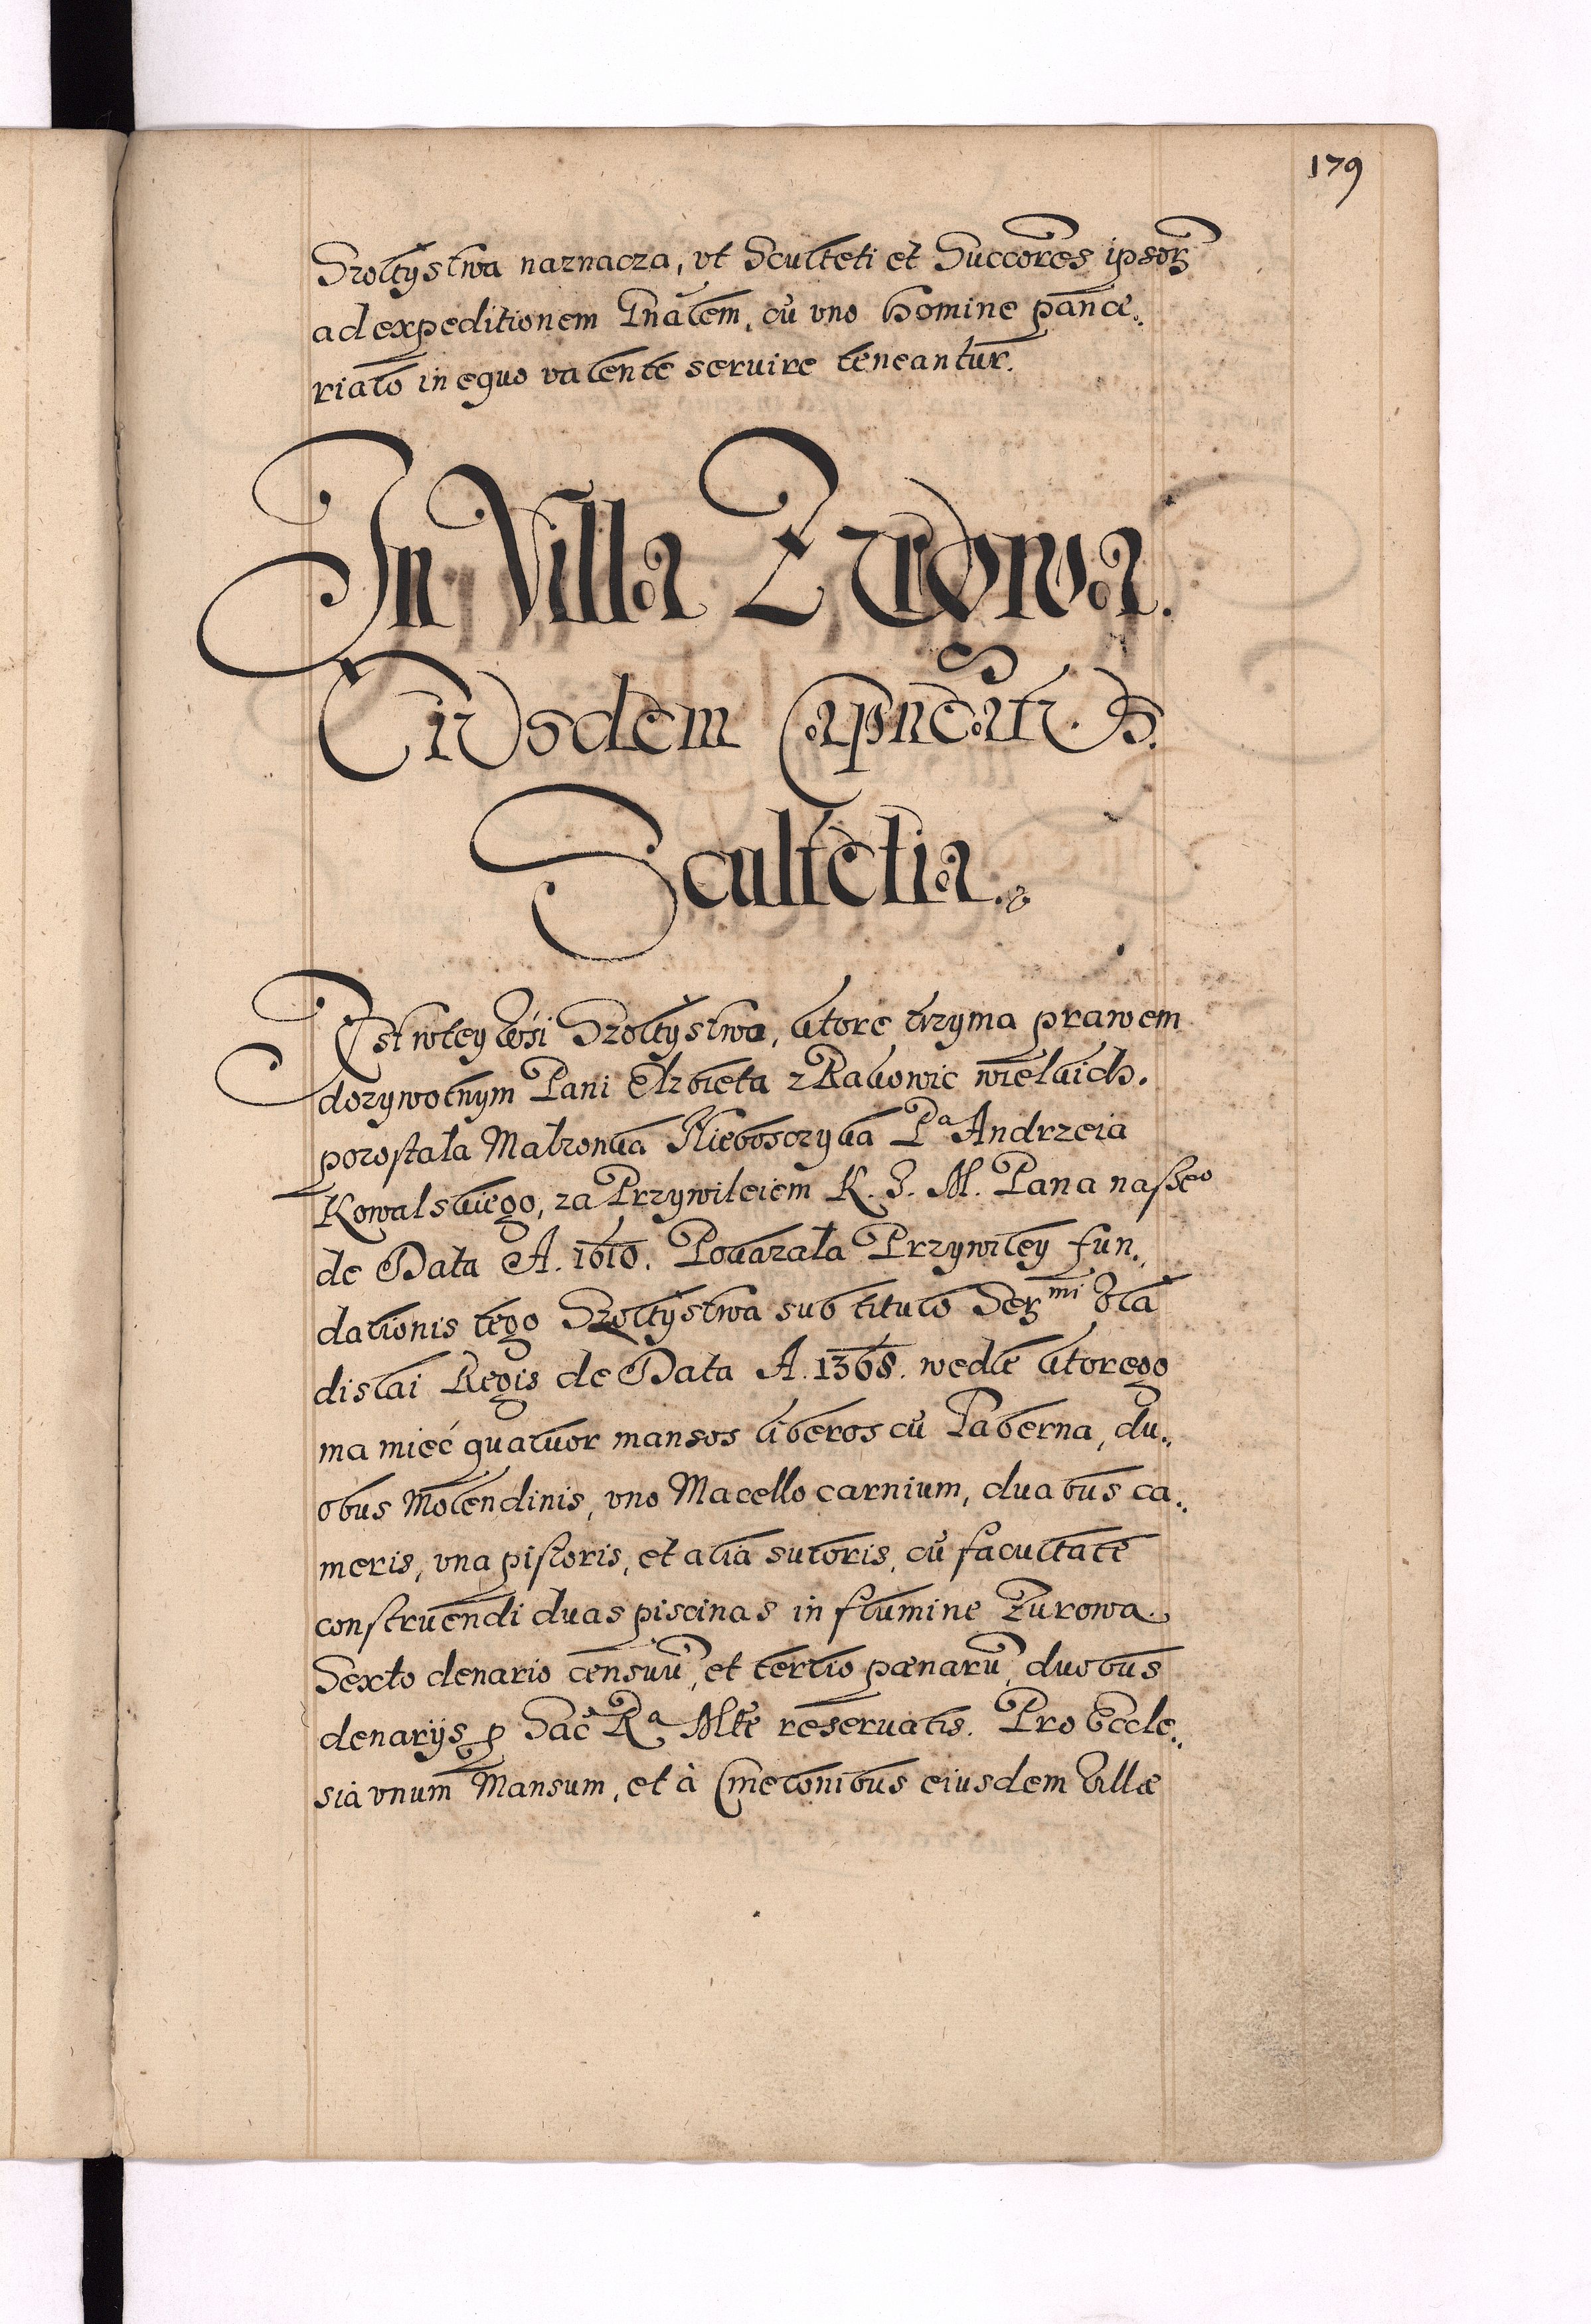 179
Szołtystwa naznacza, vt Sculteti et Succōres ipsorꝫ
ad expeditionem Gnālem, cū vno homine pance„
riato in equo valente seruire teneantur.
In Villa Zurowa.
Eiusdem Capneatus.
Scultetia.
Est w tey wsi Szołtystwo, ktore trzyma prawem
dozywotnym Pani Elzbieta z Rakowic wielkich.
pozostała Małzonka Nieboszczyka Pª Andrzeia
Kowalskiego, za Przywileiem K. J. M. Pana naßeº
de Data A. 1610. Pokazała Przywiley fun„
dationis tego Szołtystwa sub titulo Serᵐⁱ Vla
dislai Regis de Data A. 1368. wedle ktorego
ma mieć quatuor mansos liberos cū Taberna, du„
obus Molendinis, vno Macello carnium, duabus ca„
meris, vna pistoris, et alia sutoris, cū facultate
construendi duas piscinas in flumine Zurowa.
Sexto denario censuū, et tertio pœnarū, duobus
denarijs ꝓ Sac Rª Mtē reseruatis. Pro Eccle„
sia vnum Mansum, et à Cmetonibus eiusdem Villæ